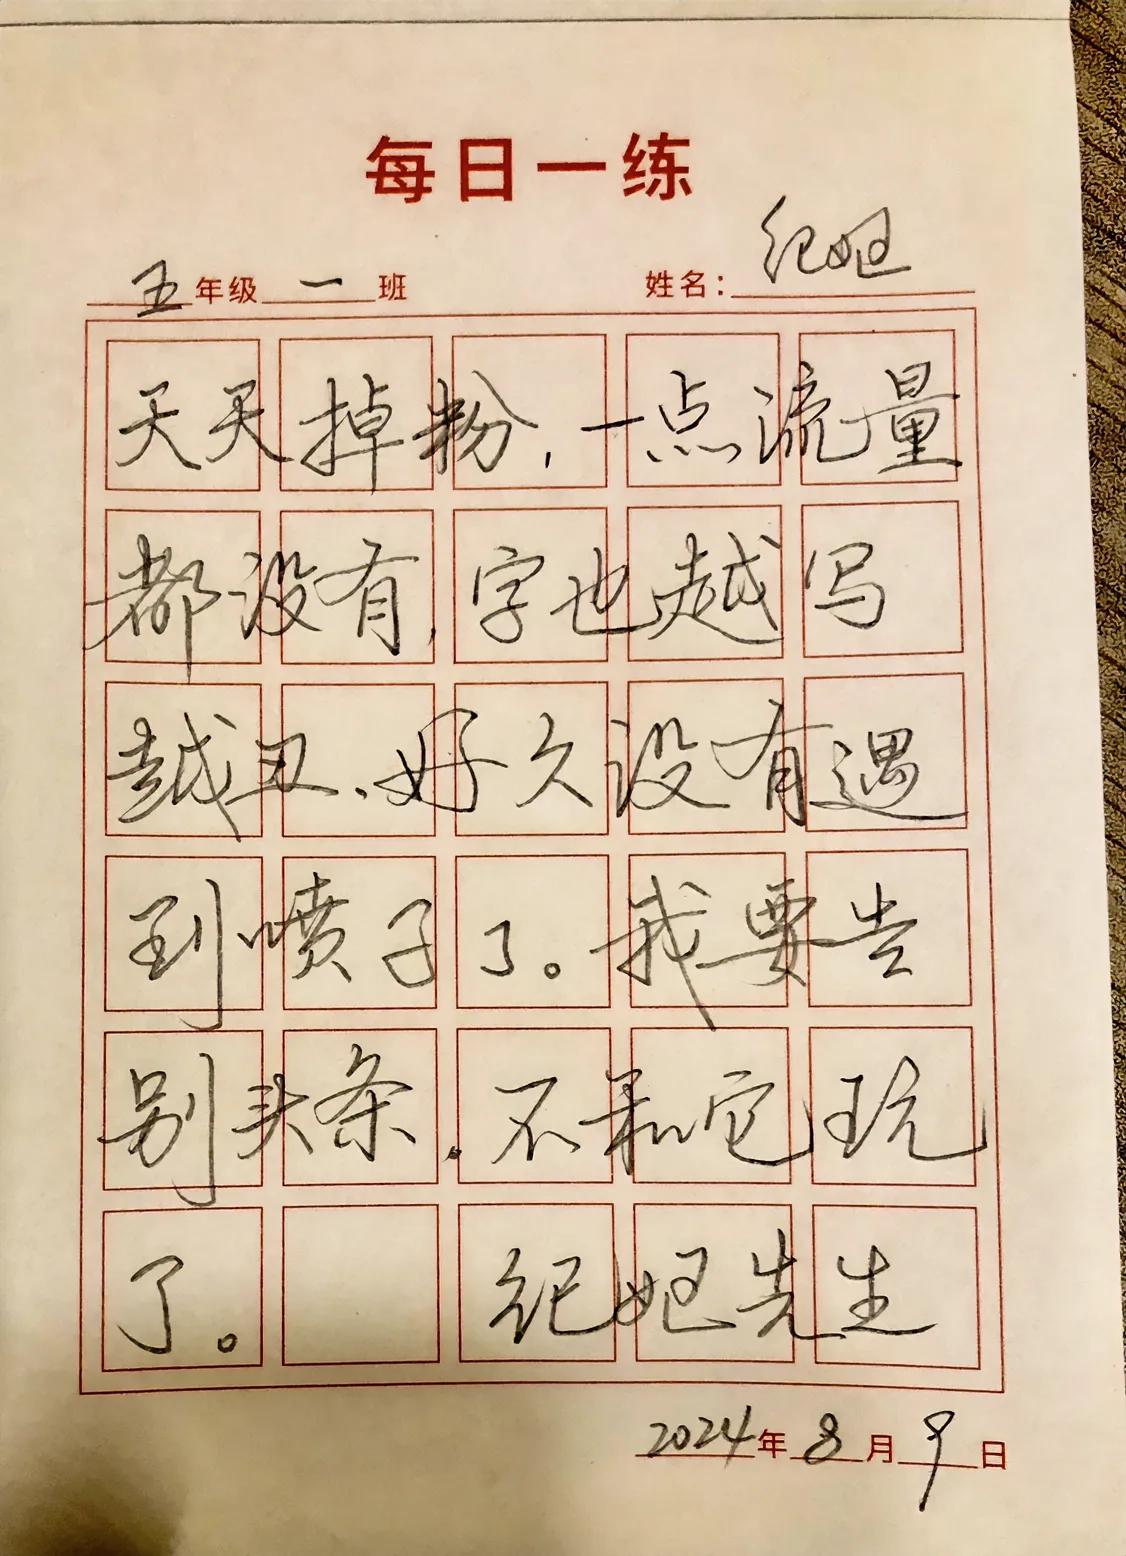 每日一练
五年级一班 姓名：纪妲
天天掉粉，一点流量
都没有，字也越写
越丑、好久没有遇
到喷子了。我要告
别头条．不和它玩
了。 纪妲先生
2024年8月9日